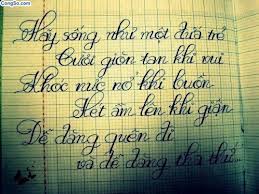 CongSo.com
Hãy sống như một đứa trẻ
Cười giòn tan khi vui
Khóc nức nở khi buồn
Hét ầm lên khi giận
Dễ dàng quên đi
và dễ dàng tha thứ...